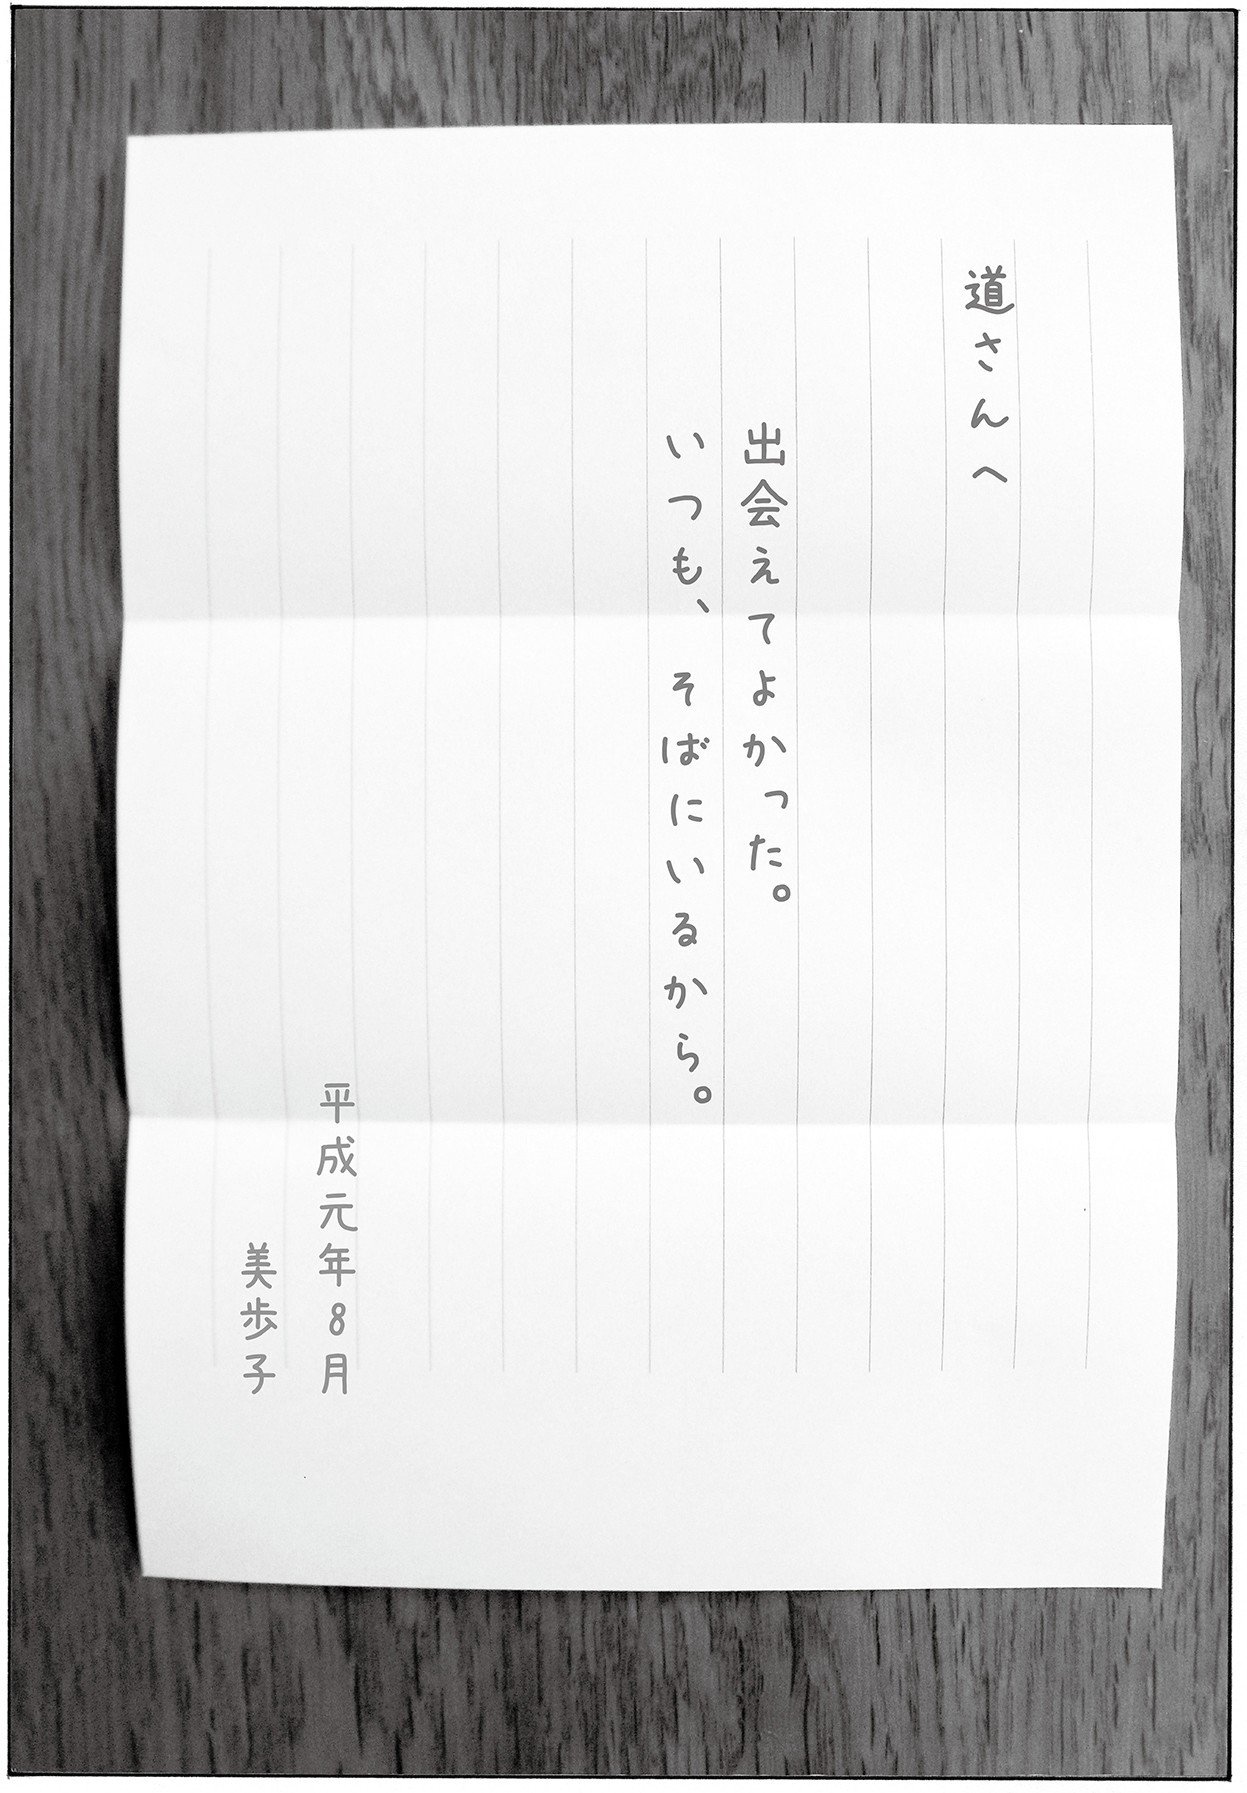 道さんへ
出会えてよかった。
いつも、そばにいるから。
平成元年8月
美歩子